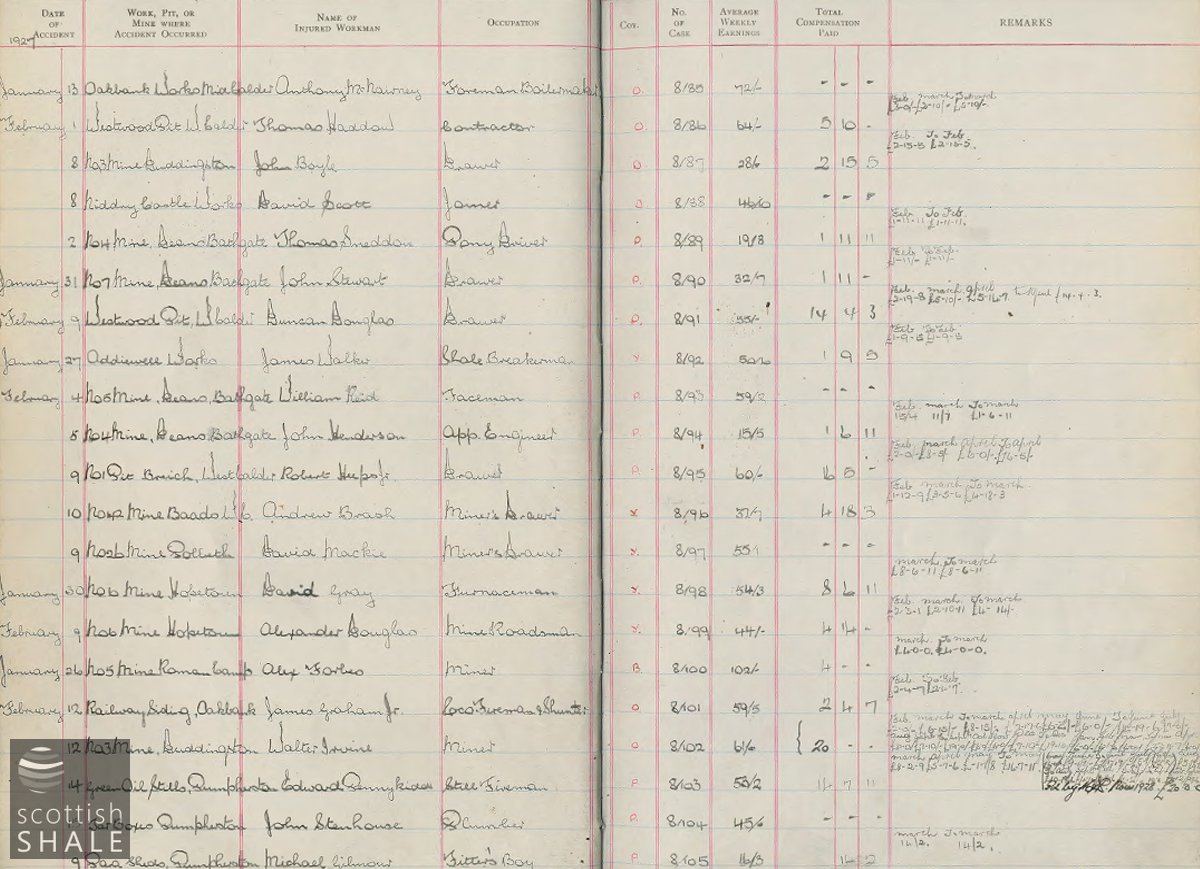 DATE OF ACCIDENT WORK, PIT, OR MINE WHERE ACCIDENT OCCURRED NAME OF INJURED WORKMAN OCCUPATION Coy. No. OF CASE AVERAGE WEEKLY EARNINGS TOTAL COMPENSATION PAID REMARKS
1927
January 13 Oakbank Works Midcalder Anthony McNairney Foreman Boilermaker O. 8/85 72/- - - -
Feb. March
February 1 Westwood Pit W. Calder Thomas Haddow Contractor O. 8/86 64/- 5 10 -
Feb. To Feb.
£2-15-5 £2-15-5.
8 No3 Mine Duddingston John Boyle Drawer O 8/87 28/6 2 15 5
8 Niddry Castle Works David Scott Joiner O 8/88 - - -
Feb. To Feb.
£1-11-11 £1-11-11.
2 No4 Mine, Deans Bathgate Thomas Sneddon Pony Driver P. 8/89 19/8 1 11 11
Feb. To Feb.
£1-11/- £1-11/-
January 31 No7 Mine, Deans Bathgate John Stewart Drawer P. 8/90 32/7 1 11 -
Feb. March April
£2-19-8 £5-10/- £5-16-7 £14-4-3.
February 9 Westwood Pit, W. Calder Duncan Douglas Drawer O. 8/91 55/- 14 4 3
Feb. To Feb.
£1-9-5 £1-9-5
January 27 Addiewell Works James Walker Shale Breakerman Y 8/92 1 9 5
February 4 No5 Mine, Deans, Bathgate William Reid Faceman P. 8/93 59/2 - - -
Feb. March To March
15/4 11/7 £1-6-11
5 No4 Mine, Deans Bathgate John Henderson App. Engineer P. 8/94 15/5 1 6 11
Feb. March April To April
£2-0/- £8-5/- £6-0/- £16-5/-
9 No1 Pit Breich, West Calder Robert Heeps Jr. Drawer P. 8/95 60/- 16 5 -
Feb March To March
£1-12-9 £3-5-6 £4-18-3
10 Mine Baads Andrew Brash Miner's Drawer Y 8/96 37/7 4 18 3
9 No26 Mine Polbeth David Mackie Miner's Drawer Y. 8/97 - - -
March To March
£8-6-11 £8-6-11
January 30 No6 Mine Hopetoun David Gray Furnaceman Y. 8/98 54/3 8 6 11
Feb. March To March
£2-3-1 £2-10-11 £4-14/-
February 9 No6 Mine Hopetoun Alexander Douglas Mine Roadsman Y. 8/99 44/- 4 14 -
March To March
£4-0-0. £4-0-0.
January 26 No5 Mine Roman Camp Alex Forbes Miner B. 8/100 102/- 4 - -
Feb. To Feb.
£2-4-7 £2-4-7.
February 12 Railway Siding, Oakbank James Graham Jr. Loco Fireman & Shunter O 8/101 59/5 2 4 7
Feb. March To March April May June,
12 No3 Mine, Duddingston Walter Irvine Miner O 8/102 61/6 20 - -
March April May To May
£8-2-9 £5-7-6 £16-7-11
14 Green Oil Stills, Pumpherston Edward Pennykidd Still Fireman P 8/103 53/2 7 11
Nov 1928
Tar Boxes Pumpherston John Stenhouse Plumber P. 8/104 45/6 - - -
March To March
14/2. 14/2.
9 Sheds, Pumpherston Michael Gilmour Fitter's Boy P. 8/105 16/3 14 2
scottish
SHALE